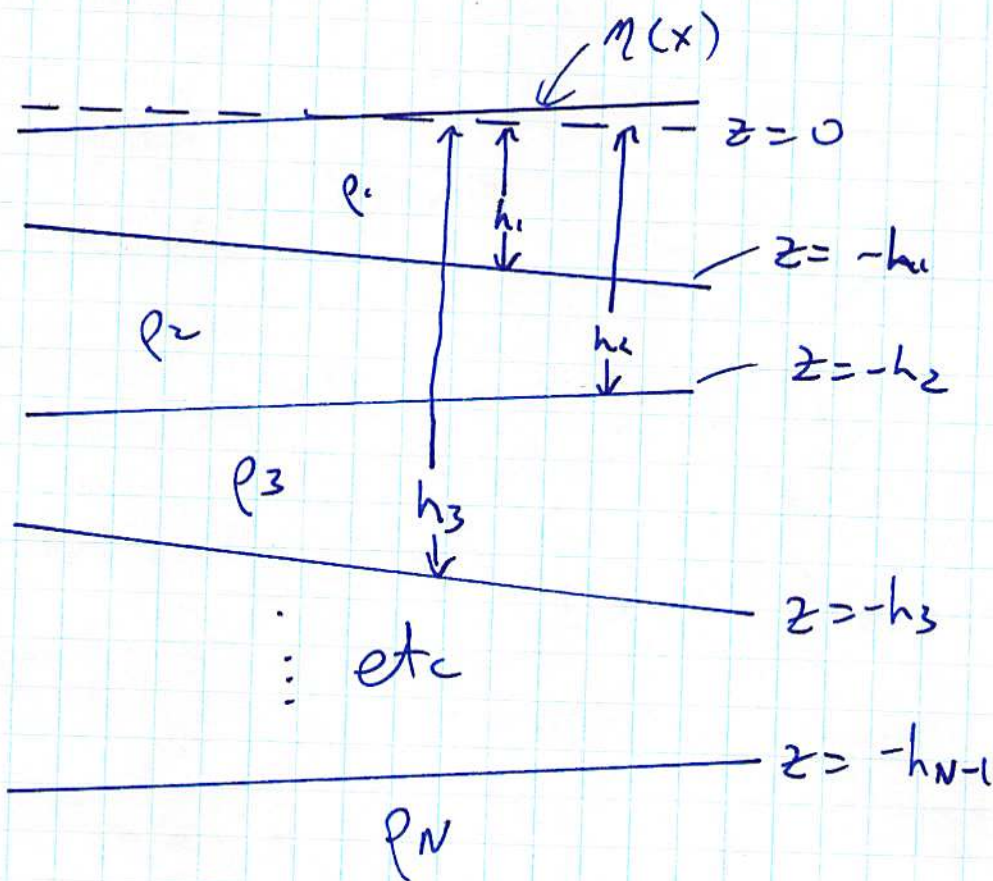 η(x)
z=0
ρ1
h1
z=-h1
ρ2
h2
z=-h2
ρ3
h3
z=-h3
⋮ etc
z=-hN-1
ρN